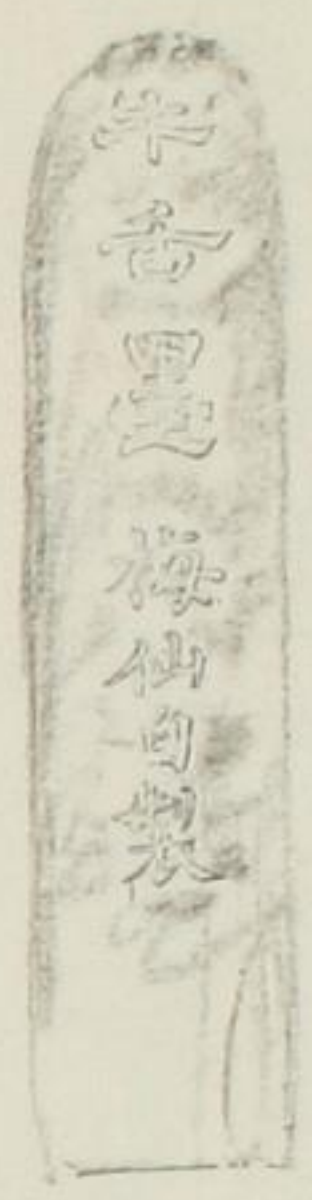 牛舌墨 梅仙自製